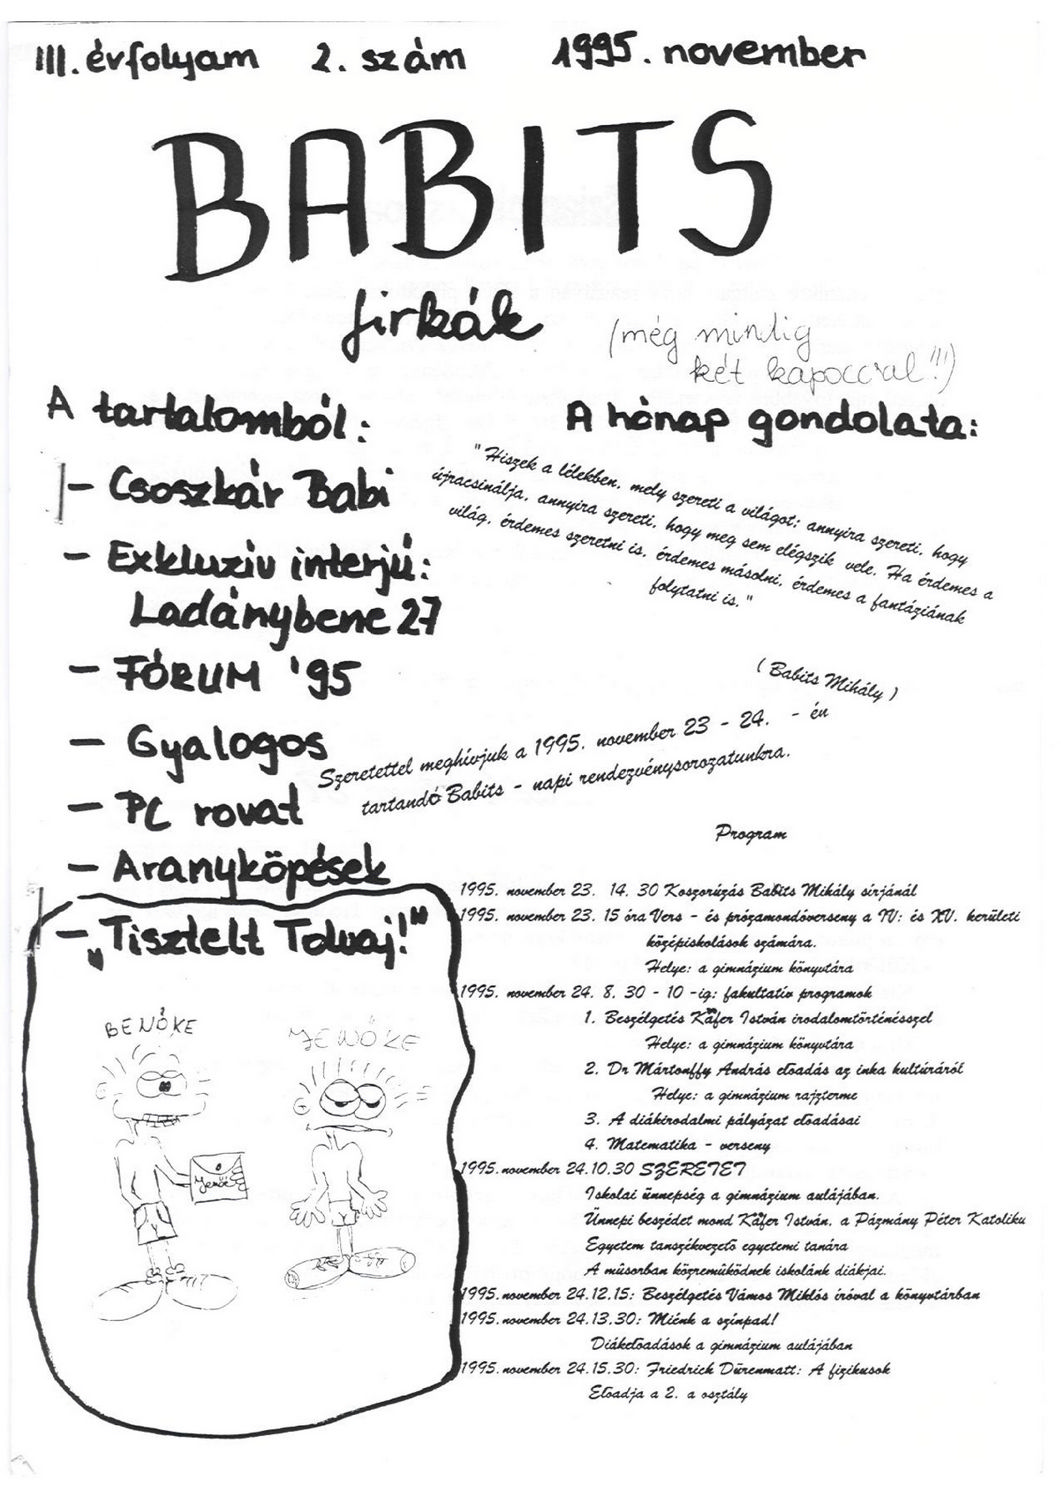 III. évfolyam 2. szám 1995. november
BABITS
firkák
(még mindig
két kapoccsal!!!)
A tartalomból:
- Csoszkár Babi
- Exkluzív interjú:
Ladánybene 27
- FÓRUM '95
- Gyalogos
- PC rovat
- Aranyköpések
- „Tisztelt Tolvaj!"
BENŐKE
JENŐKE
Jenői
A hónap gondolata:
"Hiszek a lélekben, mely szereti a világot; annyira szereti, hogy
újracsinálja, annyira szereti, hogy meg sem elégszik vele. Ha érdemes a
világ, érdemes szeretni is, érdemes másolni, érdemes a fantáziának
folytatni is."
( Babits Mihály )
Szeretettel meghívjuk a 1995. november 23 - 24. - én
tartandó Babits - napi rendezvénysorozatunkra.
Program
1995. november 23. 14. 30 Koszorúzás Babits Mihály sírjánál
1995. november 23. 15 óra Vers - és prózamondóverseny a IV: és XV. kerületi
középiskolások számára.
Helye: a gimnázium könyvtára
1995. november 24. 8. 30 - 10 -ig: fakultatív programok
1. Beszélgetés Käfer István irodalomtörténésszel
Helye: a gimnázium könyvtára
2. Dr Mártonffy András előadás az inka kultúráról
Helye: a gimnázium rajzterme
3. A diákirodalmi pályázat előadásai
4. Matematika - verseny
1995. november 24.10.30 SZERETET
Iskolai ünnepség a gimnázium aulájában.
Ünnepi beszédet mond Käfer István, a Pázmány Péter Katoliku
Egyetem tanszékvezető egyetemi tanára
A műsorban közreműködnek iskolánk diákjai.
1995. november 24.12.15: Beszélgetés Vámos Miklós íróval a könyvtárban
1995. november 24.13.30: Miénk a színpad!
Diákelőadások a gimnázium aulájában
1995. november 24.15.30: Friedrich Dürenmatt: A fizikusok
Előadja a 2. a osztály